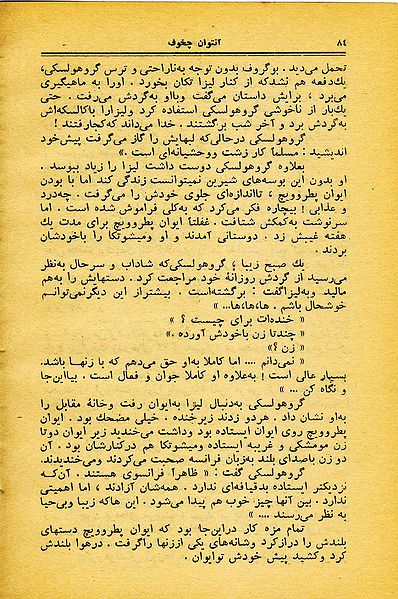 ۸۴
آنتوان چخوف
تحمل می‌دید . بوگروف بدون توجه به‌ناراحتی و ترس گروهولسکی،
یك‌دفعه هم نشدکه از کنار لیزا تکان بخورد . اورا به ماهیگیری
می‌برد ، برایش داستان می‌گفت وبااو به‌گردش می‌رفت . حتی
یك‌بار از ناخوشی گروهولسکی استفاده کرد ولیزارا باکالسکه‌اش
به‌گردش برد و آخر شب برگشتند . خدا می‌داند که‌کجارفتند !
گروهولسکی درحالی‌که لبهایش را گاز می‌گرفت پیش‌خود
اندیشید : مسلماً کار زشت ووحشیانه‌ای است .»
بعلاوه گروهولسکی دوست داشت لیزا را زیاد ببوسد .
او بدون این بوسه‌های شیرین نمیتوانست زندگی کند اما با بودن
ایوان پطروویچ ، تااندازه‌ای جلوی خودش را می‌گرفت . چه‌درد
و عذابی ! بیچاره فکر می‌کرد که به‌کلی فراموش شده است . اما
سرنوشت به‌کمکش شتافت . غفلتاً ایوان پطروویچ برای مدت یك
هفته غیبش زد . دوستانی آمدند و او ومیشوتکا را باخودشان
بردند .
یك صبح زیبا ، گروهولسکی‌که شاداب و سرحال به‌نظر
می‌رسید از گردش روزانهٔ خود مراجعت کرد . دستهایش را به‌هم
مالید وبه‌لیزاگفت : برگشته‌است . بیشتراز این دیگرنمی‌توانم
خوشحال باشم . ها،ها،ها...»
« خنده‌ات برای چیست ؟ »
« چندتا زن باخودش آورده .»
« زن ؟»
« نمی‌دانم .... اما کاملا به‌او حق می‌دهم که با زنها باشد.
بسیار عالی است ! به‌علاوه او کاملا جوان و فعال است . بیااین‌جا
و نگاه کن ... »
گروهولسکی به‌دنبال لیزا به‌ایوان رفت وخانهٔ مقابل را
به‌او نشان داد . هردو زدند زیرخنده . خیلی مضحك بود . ایوان
پطروویچ روی ایوان ایستاده بود وداشت می‌خندید زیر ایوان دوتا
زن مومشکی و غریبه ایستاده ومیشوتکا هم درکنارشان بود . آن
دو زن باصدای بلند به‌زبان فرانسه صحبت می‌کردند ومی‌خندیدند
گروهولسکی گفت : « ظاهراً فرانسوی هستند . آن‌که
نزدیکتر ایستاده بدقیافه‌ای ندارد . همه‌شان آزادند ، اما اهمیتی
ندارد . بین آنها چیز خوب هم پیدا می‌شود . این هاکه زیبا وبی‌حیا
به نظر می‌رسند .... »
تمام مزه کار دراین‌جا بود که ایوان پطروویچ دستهای
بلندش را درازکرد وشانه‌های یکی اززنها راگرفت . درهوا بلندش
کرد وکشید پیش خودش توایوان .